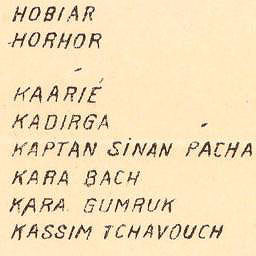 HOBIAR
HORHOR
KAARIÉ
KADIRGA
KAPTAN SINAN PACHA
KARA BACH
KARA GUMRUK
KASSIM TCHAVOUCH